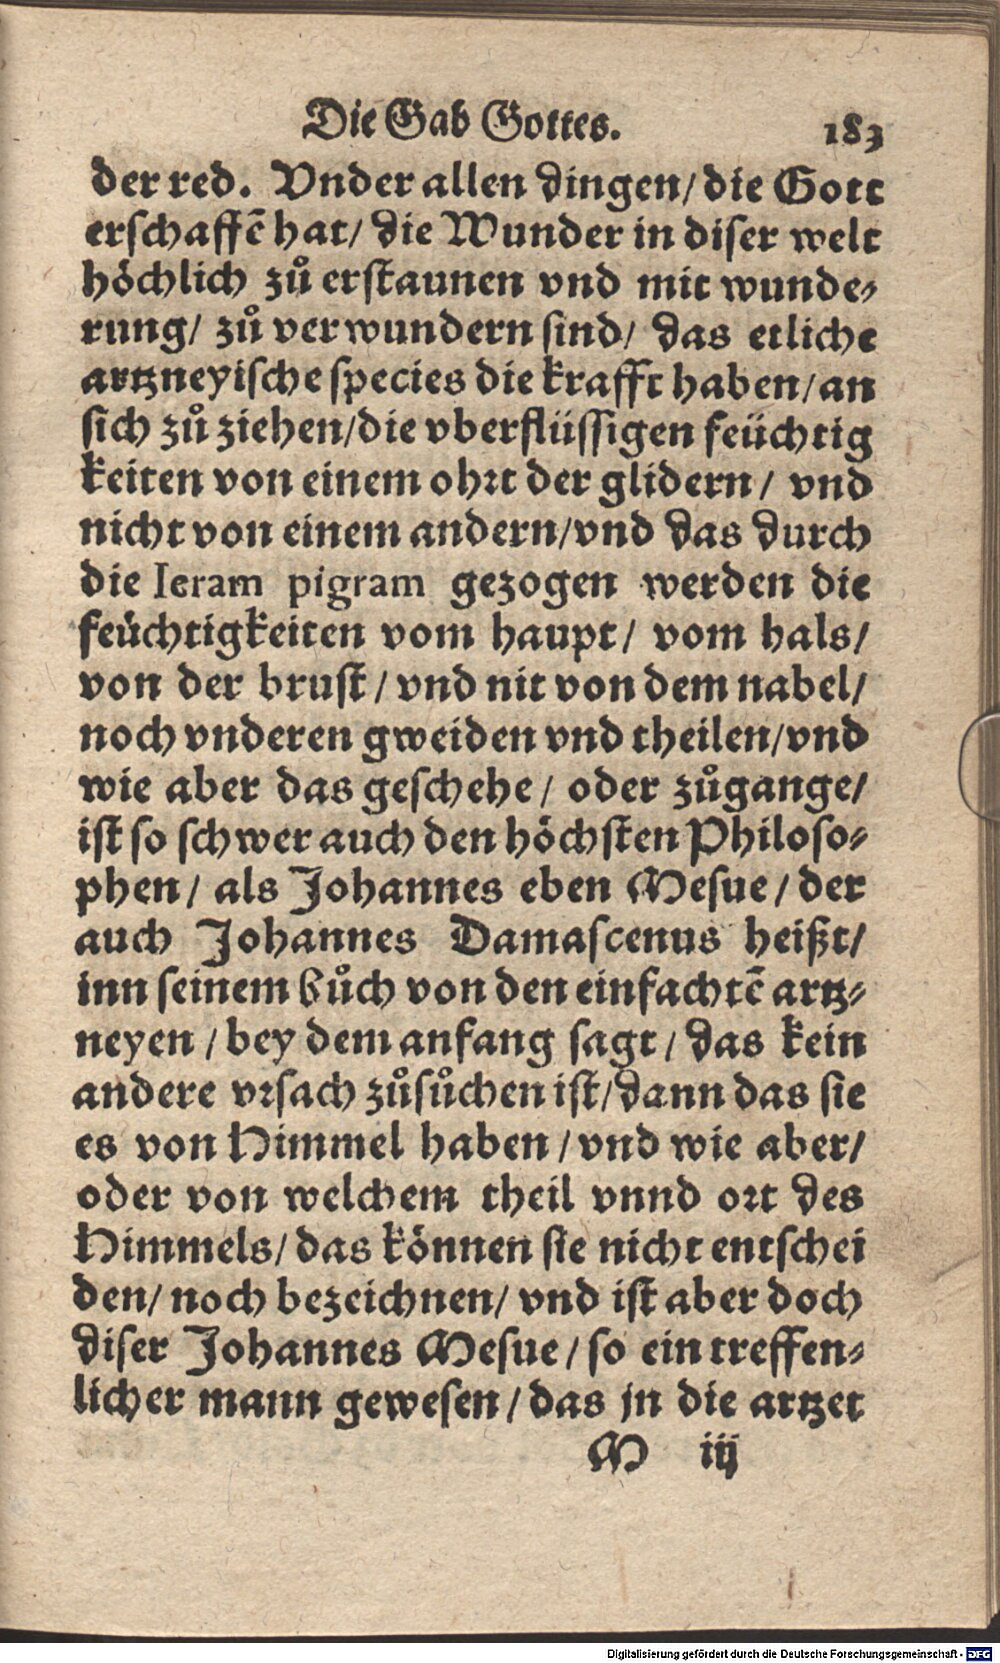 Die Gab Gottes. 183
der red. Vnder allen dingen/ die Gott
erschaffē hat/ die Wunder in diser welt
höchlich zů erstaunen vnd mit wunde-
rung/ zů verwundern sind/ das etliche
artzneyische species die krafft haben/ an
sich zů ziehen/die vberflüssigen feüchtig
keiten von einem ohrt der glidern/ vnd
nicht von einem andern/vnd das durch
die Ieram pigram gezogen werden die
feüchtigkeiten vom haupt/ vom hals/
von der brust/ vnd nit von dem nabel/
noch vnderen gweiden vnd theilen/vnd
wie aber das geschehe/ oder zůgange/
ist so schwer auch den höchsten Philoso-
phen/ als Johannes eben Mesue/ der
auch Johannes Damascenus heißt/
inn seinem bůch von den einfachtē artz-
neyen/ bey dem anfang sagt/ das kein
andere vrsach zůsůchen ist/dann das sie
es von Himmel haben/ vnd wie aber/
oder von welchem theil vnnd ort des
Himmels/ das können sie nicht entschei
den/ noch bezeichnen/ vnd ist aber doch
diser Johannes Mesue/ so ein treffen-
licher mann gewesen/ das jn die artzet
M iij
Digitalisierung gefördert durch die Deutsche Forschungsgemeinschaft - DFG